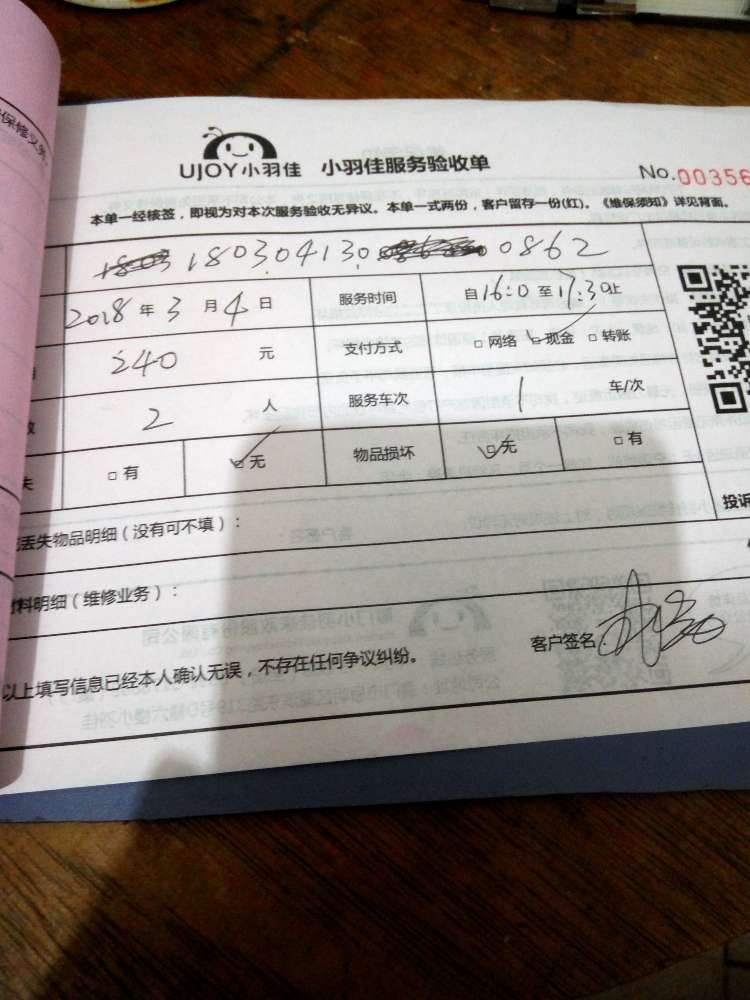 保修义务。
UJOY小羽佳 小羽佳服务验收单
No.00356
本单一经核签，即视为对本次服务验收无异议。本单一式两份，客户留存一份(红)。《维保须知》详见背面。
180304130 0862
2018年3月4日 服务时间 自16:0至17:30止
240元 支付方式 □网络 ☑现金 □转账
2人 服务车次 1 车/次
失 □有 ☑无 物品损坏 ☑无 □有
丢失物品明细（没有可不填）：
投诉
材料明细（维修业务）：
以上填写信息已经本人确认无误，不存在任何争议纠纷。 客户签名